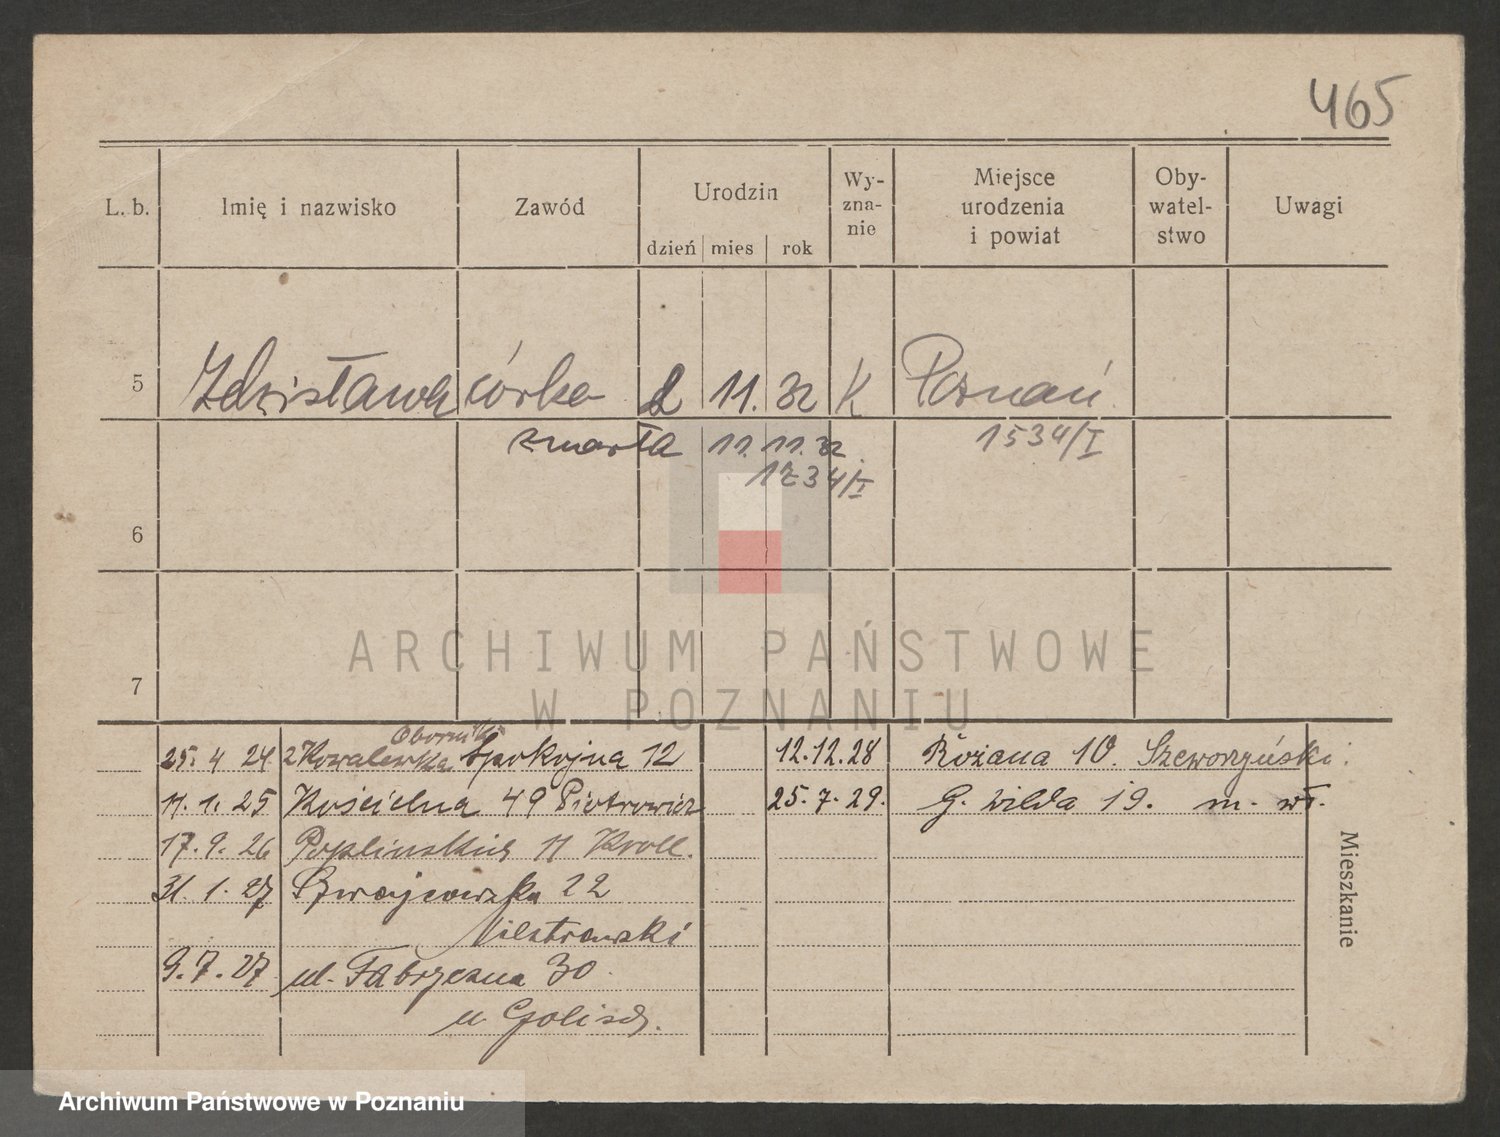 465
L. b. Imię i nazwisko Zawód Urodzin Wy-zna-nie Miejsce urodzenia i powiat Oby-watel-stwo Uwagi
dzień mies rok
5 Zdzisława córka 2 11. 32 K Poznań
zmarła 11. 11. 32 1534/I
1234/I
6
ARCHIWUM PAŃSTWOWE
7
W POZNANIU
Obornik
25. 4 24 Kowalewska Spokojna 12
11. 1. 25 Kościelna 49 Piotrowicz
17. 9. 26 11 Kroll.
31. 1. 27 22
9. 7. 27 ul. Fabryczna 30
u Golisch.
12.12.28 Różana 10.
25. 7. 29. G. Wilda 19. m. wł.
Mieszkanie
Archiwum Państwowe w Poznaniu